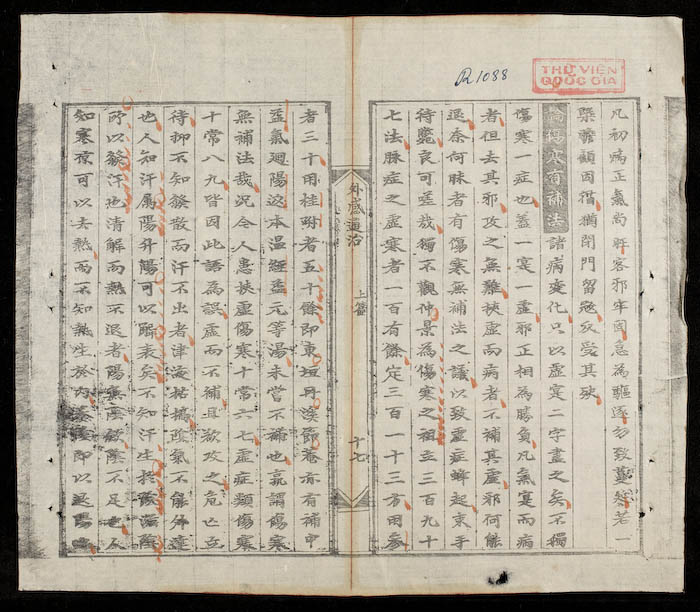 R1088
THƯ VIỆN
QUỐC GIA
凡初病正氣尚旺客邪牢固急為驅逐勿致蔓若一
槩瞻顧因循猶閉門留寇反受其殃
論傷寒有補法諸病變化只以虛寔二字盡之矣不獨
傷寒一症也蓋一寔一虛邪正相為勝負凡氣寔而病
者但去其邪攻之無難挾虛而病者不補其虛邪何能
退奈何昧者有傷寒無補法之議以致虛症蜂起束手
待斃良可嗟哉獨不觀仲景為傷寒之祖立三百九十
七法脉症之虛寒者一百有餘定三百一十三方用參
外感通治 上篇 十七
者三十用桂附者五十餘即東垣丹溪節菴亦有補中
益氣廻陽返本温經益元等湯未嘗不補也孰謂傷寒
無補法哉況今人患挾虛傷寒十常六七虛症類傷寒
十常八九皆因此語為誤虛而不補且欲攻之危亡立
待抑不知發散而汗不出者津液枯槁陰氣不能外達
也人知汗屬陽升陽可以解表矣不知汗生於陰滋陰
所以發汗也清解而熱不退者陽無陰斂陰不足也人
知寒凉可以去熱而不知熱生於内即以陽